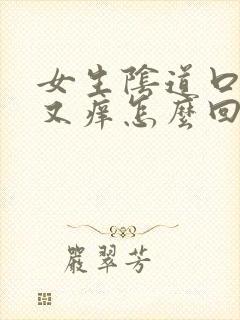 女生陰道口
又痒怎麼回
嚴翠芳